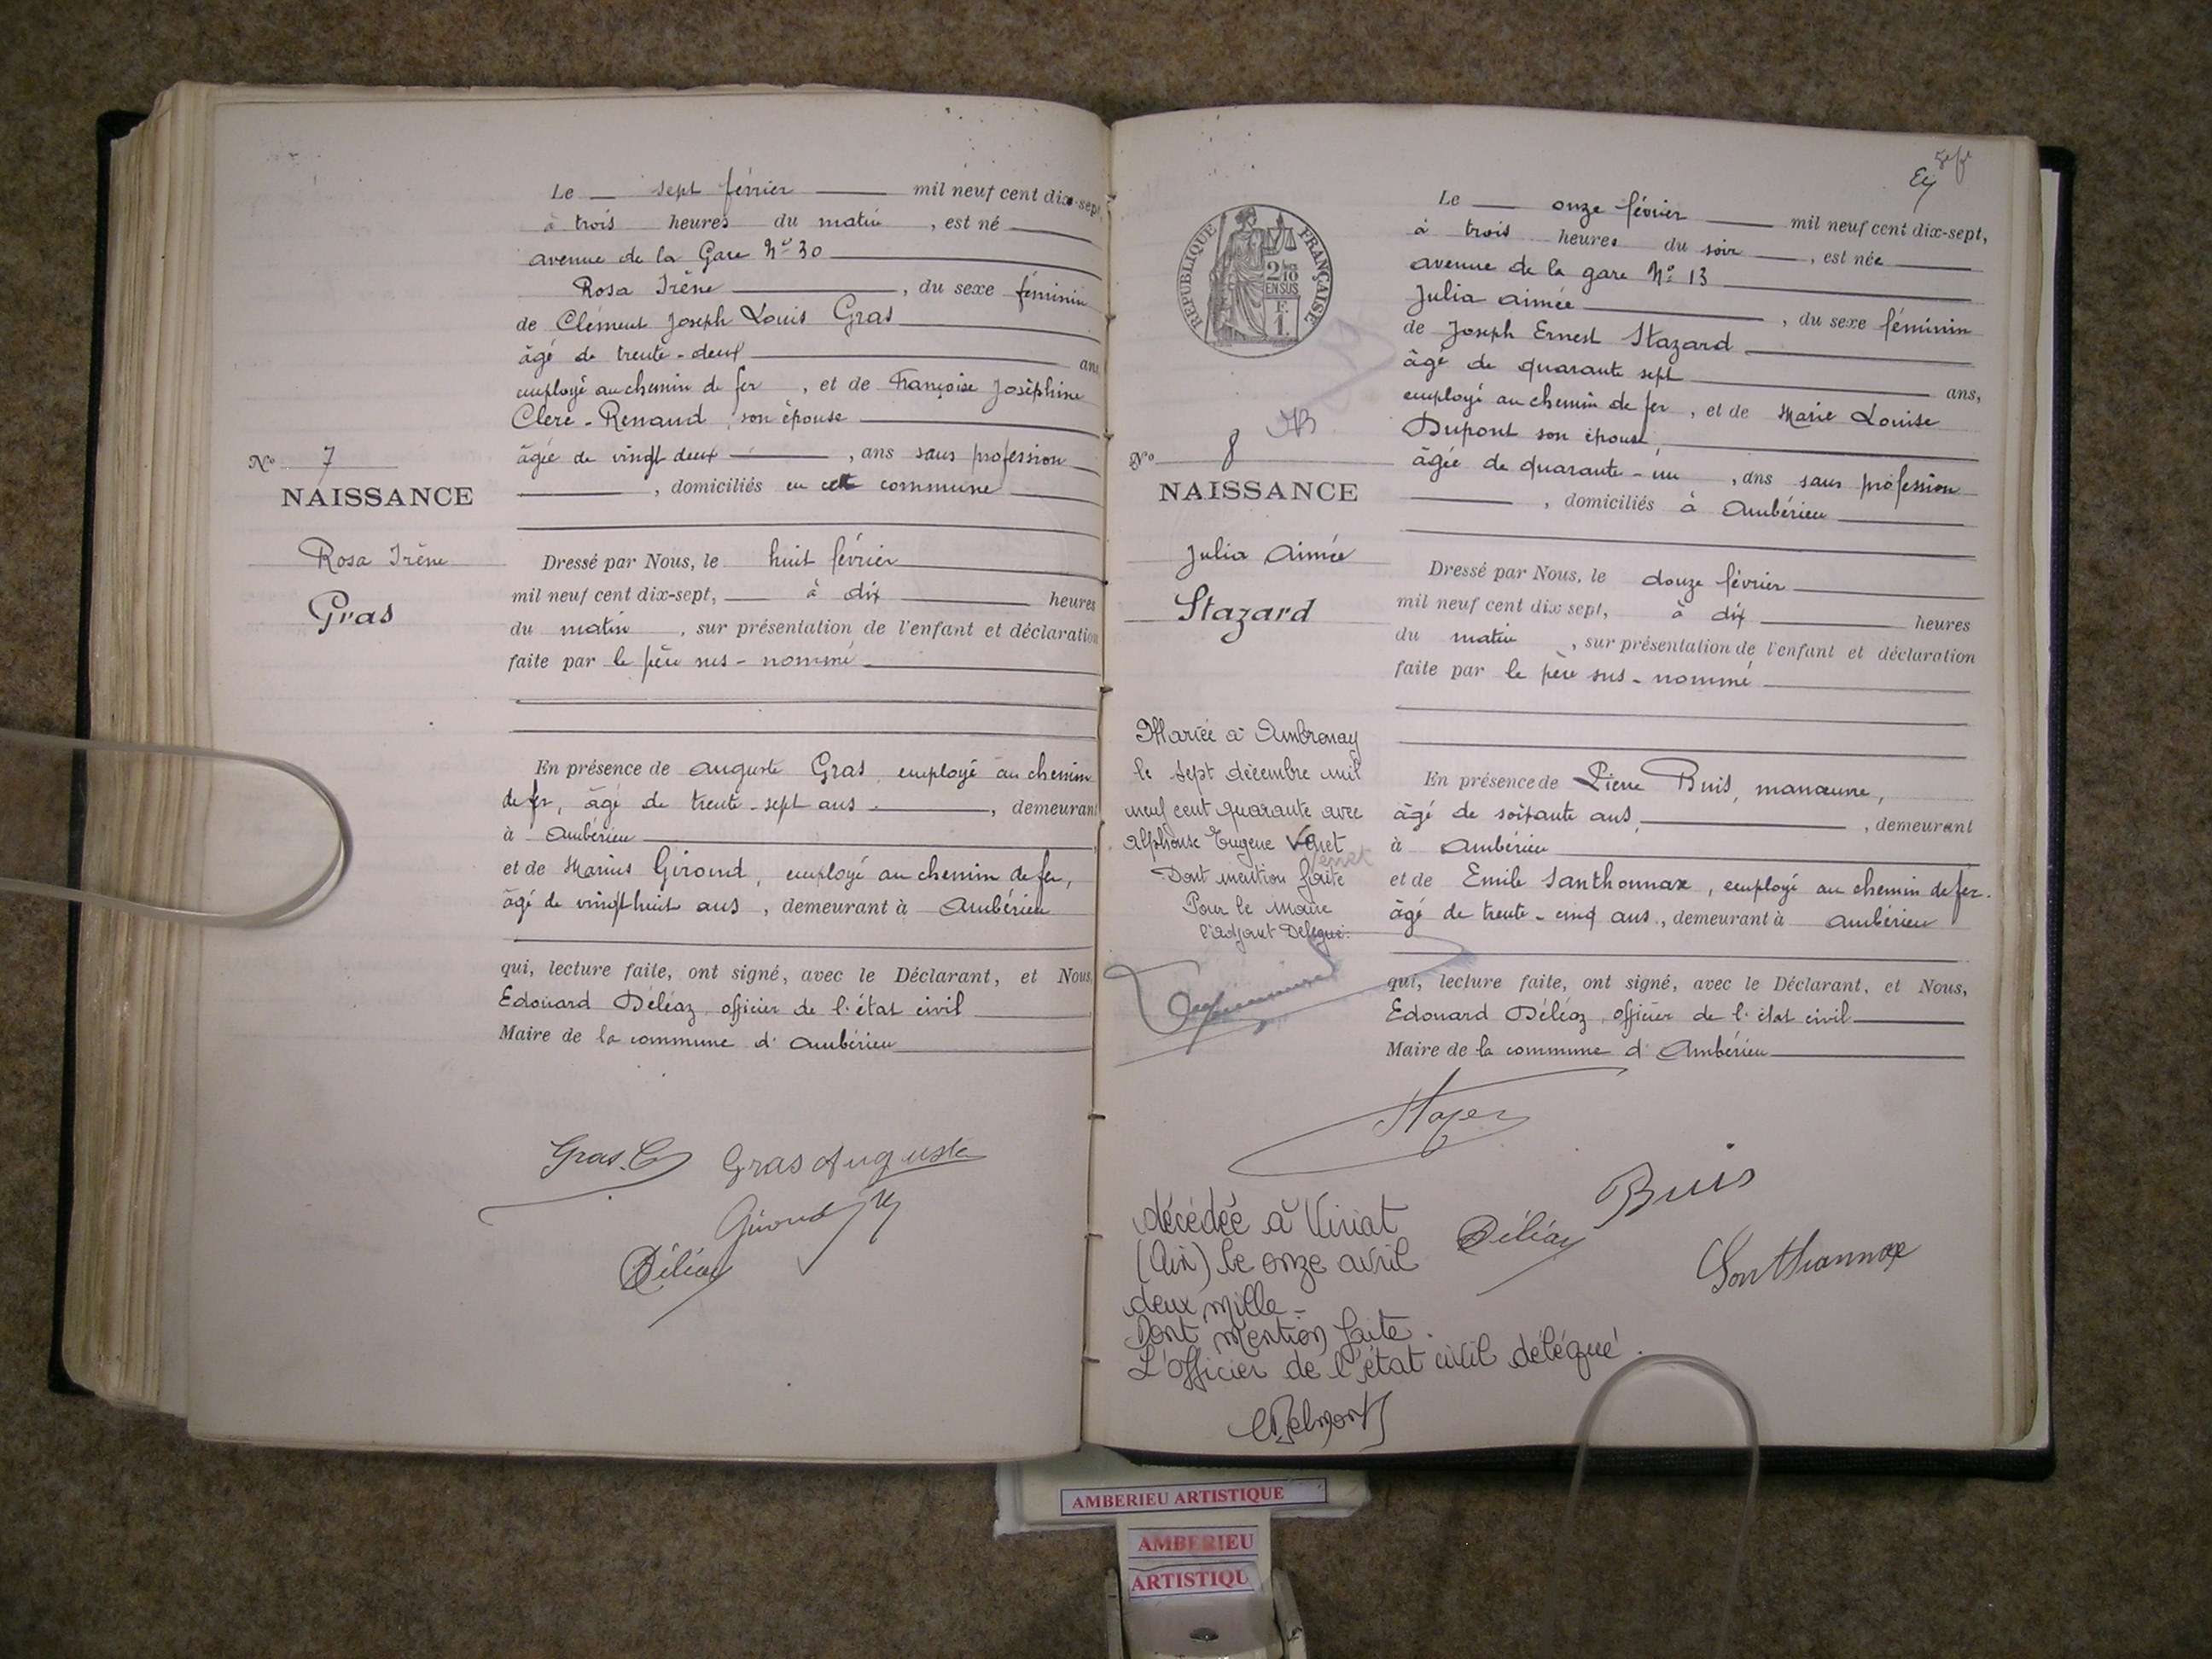 Le sept février mil neuf cent dix-sept
à trois heures du matin, est né
avenue de la Gare N° 30
Rosa Irène, du sexe féminin
de Clément Joseph Louis Gras
âgé de trente-deux ans
employé au chemin de fer, et de Françoise Joséphine
Clerc-Renaud, son épouse
âgée de vingt deux, ans sans profession
, domiciliés en cette commune
N° 7
NAISSANCE
Rosa Irène
Gras
Dressé par Nous, le huit février
mil neuf cent dix-sept, à dix heures
du matin, sur présentation de l'enfant et déclaration
faite par le père sus-nommé
En présence de Auguste Gras, employé au chemin
de fer, âgé de trente-sept ans, demeurant
à Ambérieu
et de Marius Giroud, employé au chemin de fer,
âgé de vingt huit ans, demeurant à Ambérieu
qui, lecture faite, ont signé, avec le Déclarant, et Nous,
Edouard Déléaz, officier de l'état civil
Maire de la commune d'Ambérieu
Gras. C Gras Auguste
Giroud M
Déléaz
Le onze février mil neuf cent dix-sept,
à trois heures du soir, est née
avenue de la gare N° 13
Julia Aimée, du sexe féminin
de Joseph Ernest Stazard
âgé de quarante sept ans,
employé au chemin de fer, et de Marie Louise
Dupont son épouse
âgée de quarante-un, ans sans profession
, domiciliés à Ambérieu
REPUBLIQUE FRANÇAISE
2/10
EN SUS
F.
1.
N° 8
NAISSANCE
Julia Aimée
Stazard
Dressé par Nous, le douze février
mil neuf cent dix sept, à dix heures
du matin, sur présentation de l'enfant et déclaration
faite par le père sus-nommé
En présence de Pierre Buis, manœuvre,
âgé de soixante ans, demeurant
à Ambérieu
et de Emile Santhonnax, employé au chemin de fer.
âgé de trente-cinq ans, demeurant à Ambérieu
qui, lecture faite, ont signé, avec le Déclarant, et Nous,
Edouard Déléaz, officier de l'état civil
Maire de la commune d'Ambérieu
Mariée à Ambronay
le sept décembre mil
neuf cent quarante avec
Alphonse Eugène Venet
Dont mention faite
Pour le Maire
l'adjoint Délégué.
Buis
Déléaz
Santhonnax
décédée à Viriat
(Ain) le onze avril
deux mille -
Dont mention faite.
L'Officier de l'état civil délégué.
Belmont
AMBERIEU ARTISTIQUE
AMBERIEU
ARTISTIQU